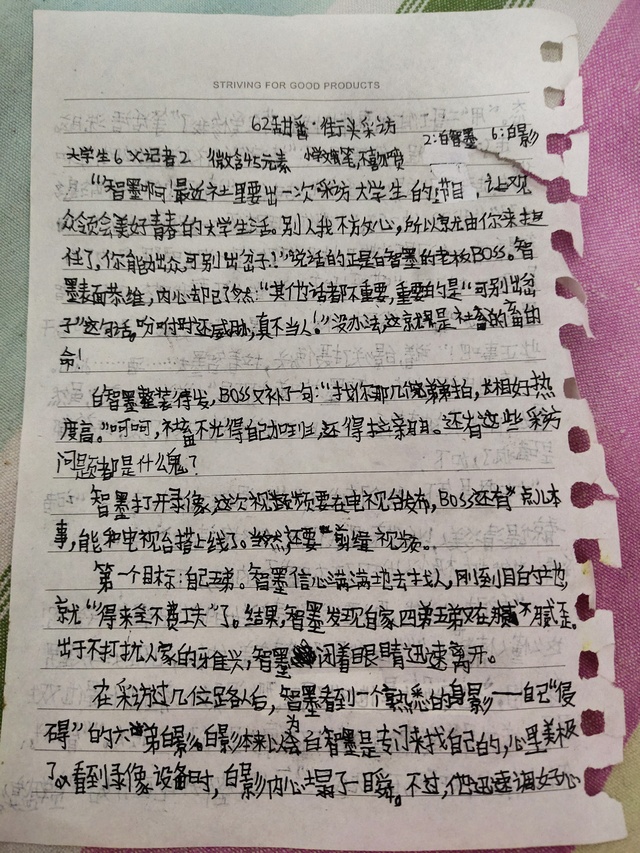 STRIVING FOR GOOD PRODUCTS
62甜番·街头采访
2:白智墨 6:白影
大学生6X记者2 微含45元素 小学文笔,不喜勿喷
"智墨啊!最近社里要出一次"采访大学生"的节目,让观
众领会美好青春的大学生活。别人我不放心,所以就由你来担
任了,你能力出众,可别出岔子!"说话的正是白智墨的老板BOSS。智
墨表面恭维,内心却已了然:"其他话都不重要,重要的是"可别出岔
子"这句话。吩咐时还威胁,真不当人!"没办法,这就是社畜的畜的
命!
白智墨整装待发,BOSS又补了句:"找你那几个弟弟拍,长相好热
度高。"呵呵,社畜不光得自己加班,还得拉亲眷。还有这些采访
问题都是什么鬼?
智墨打开录像,这次视频要在电视台发布,BOSS还有点儿本
事,能和电视台搭上线了。当然,还要剪辑视频。
第一个目标:自己弟。智墨信心满满地去找人,刚到目的地,
就"得来全不费工夫"了。结果,智墨发现自家四弟五弟又在腻腻歪。
出于不打扰人家的雅兴,智墨闭着眼睛迅速离开。
在采访过几位路人后,智墨看到一个熟悉的身影——自己"侵
碍"的六弟白影。白影本来以为白智墨是专门来找自己的,心里美极
了。看到录像设备时,白影内心塌了一瞬。不过,他迅速调好心